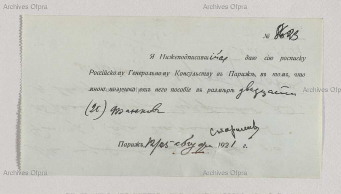 Archives Ofpra
Archives Ofpra
№ 8623
Я Нижеподписавшійся даю сію росписку
Россійскому Генеральному Консульству въ Парижѣ, въ томъ, что
мною полученъ отъ него пособіе въ размѣрѣ двадцати
(20) франковъ
Парижъ, 1921 г.
Archives Ofpra
Archives Ofpra